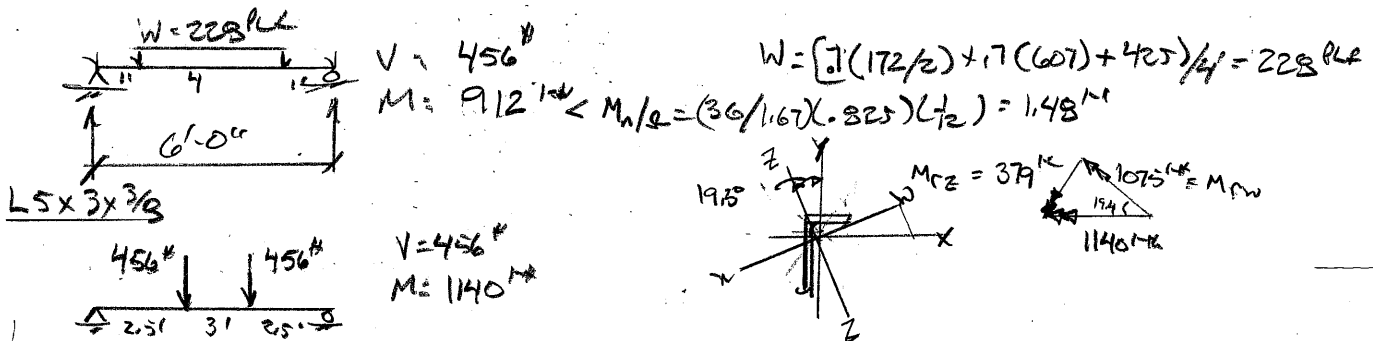 W = 228 PLF
1' 4 1'
6'-0"
V = 456#
M = 912 1-# < Mn/Ω = (36/1.67)(.825)(1/12) = 1.48 1-K
W = [.7(172/2) + .7(607) + 425]/4 = 228 PLF
L5x3x3/8
456# 456#
2.5' 3' 2.5'
V = 456#
M = 1140 1-#
Z
Y
19.5°
W
X
W
Z
Mrz = 379 1-#
1075 1-# = Mrw
19.4
1140 1-#